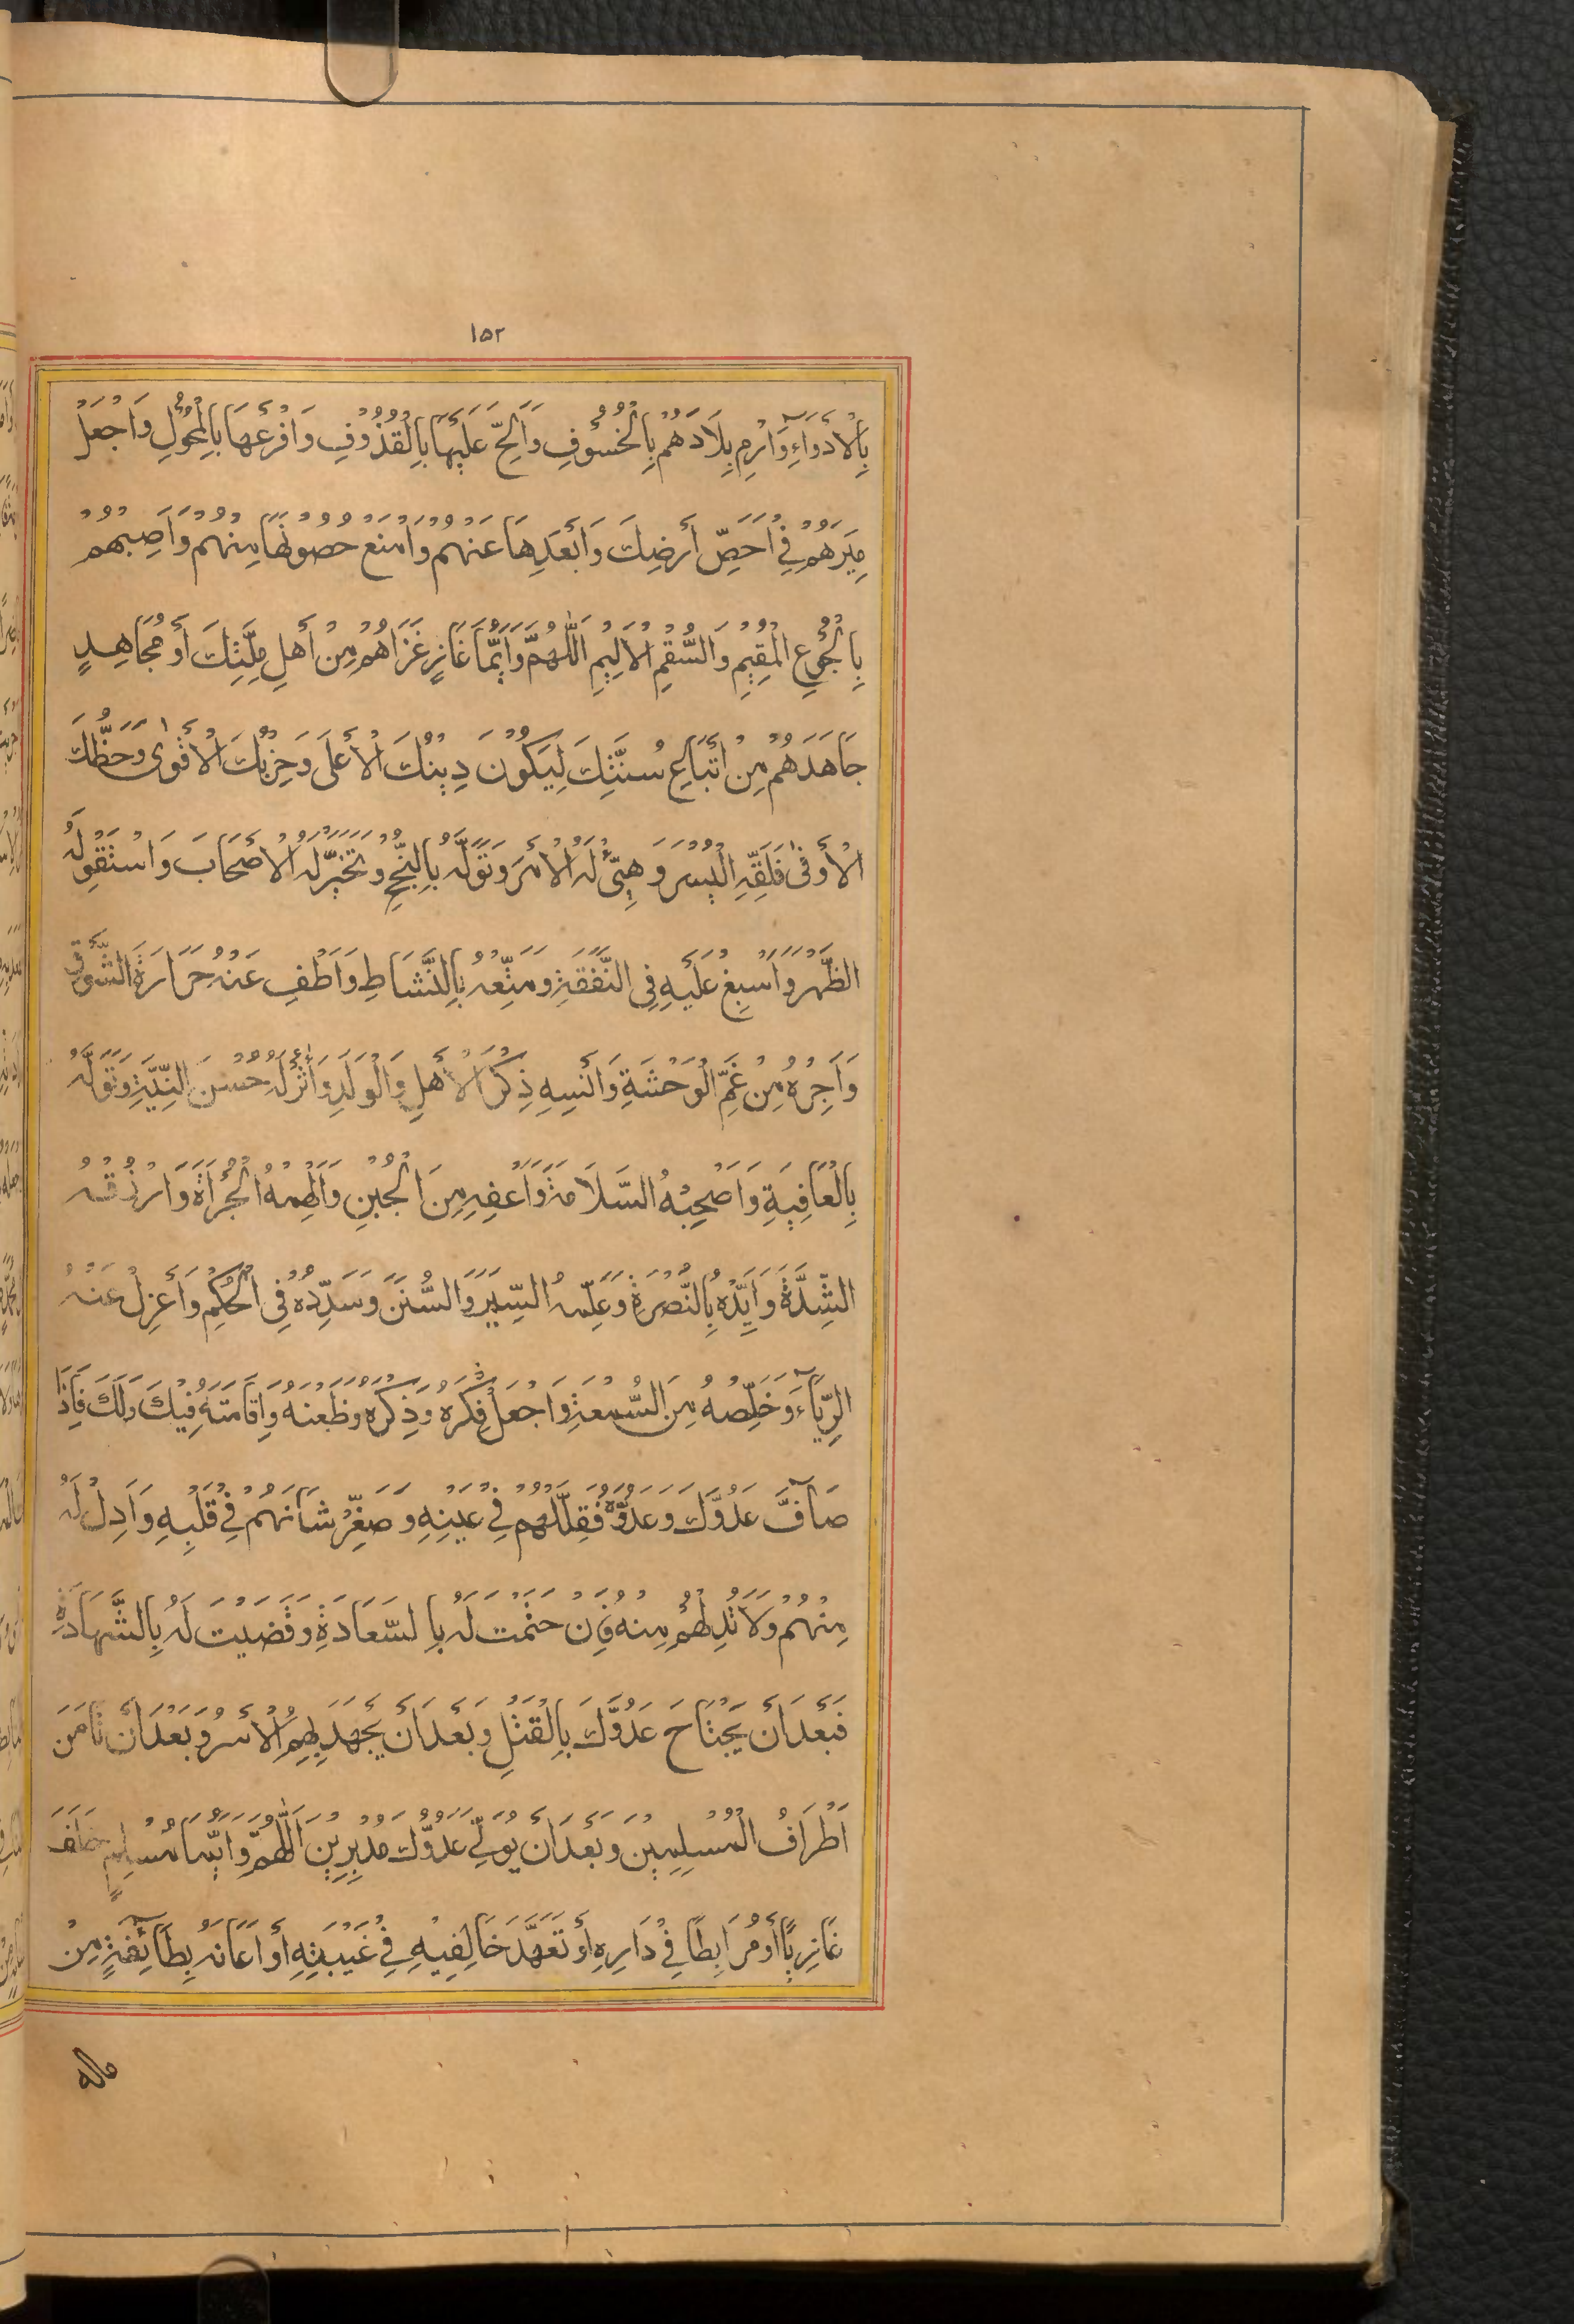 ١٥٢
بِالْأَدْوَآءِ وَارْمِ بِلَادَهُمْ بِالْخُسُوفِ وَأَلِحَّ عَلَيْهَا بِالْقُذُوفِ وَافْرَعْهَا بِالْمُحُولِ وَاجْعَلْ
مِيَرَهُمْ فِي أَحَصِّ أَرْضِكَ وَأَبْعَدِهَا عَنْهُمْ وَامْنَعْ حُصُونَهَا مِنْهُمْ وَأَصِبْهُمْ
بِالْجُوعِ الْمُقِيمِ وَالسُّقْمِ الْأَلِيمِ اَللّٰهُمَّ وَأَيُّمَا غَازٍ غَزَاهُمْ مِنْ أَهْلِ مِلَّتِكَ أَوْ مُجَاهِدٍ
جَاهَدَهُمْ مِنْ أَتْبَاعِ سُنَّتِكَ لِيَكُونَ دِينُكَ الْأَعْلَى وَحِزْبُكَ الْأَقْوٰى وَحَظُّكَ
الْأَوْفٰى فَلَقِّهِ الْيُسْرَ وَهَيِّئْ لَهُ الْأَمْرَ وَتَوَلَّهُ بِالنُّجْحِ وَتَخَيَّرْ لَهُ الْأَصْحَابَ وَاسْتَقْوِ لَهُ
الظَّهْرَ وَأَسْبِغْ عَلَيْهِ فِي النَّفَقَةِ وَمَتِّعْهُ بِالنَّشَاطِ وَأَطْفِ عَنْهُ حَرَارَةَ الشَّوْقِ
وَأَجِرْهُ مِنْ غَمِّ الْوَحْشَةِ وَأَنْسِهِ ذِكْرَ الْأَهْلِ وَالْوَلَدِ وَأْثُرْ لَهُ حُسْنَ النِّيَّةِ وَتَوَلَّهُ
بِالْعَافِيَةِ وَأَصْحِبْهُ السَّلَامَةَ وَأَعْفِهِ مِنَ الْجُبْنِ وَأَلْهِمْهُ الْجُرْأَةَ وَارْزُقْهُ
الشِّدَّةَ وَأَيِّدْهُ بِالنُّصْرَةِ وَعَلِّمْهُ السِّيَرَ وَالسُّنَنَ وَسَدِّدْهُ فِي الْحُكْمِ وَأَعْزِلْ عَنْهُ
الرِّيَآءَ وَخَلِّصْهُ مِنَ السُّمْعَةِ وَاجْعَلْ فِكْرَهُ وَذِكْرَهُ وَظَعْنَهُ وَإِقَامَتَهُ فِيكَ وَلَكَ فَإِذَا
صَآفَّ عَدُوَّكَ وَعَدُوَّهُ فَقَلِّلْهُمْ فِي عَيْنِهِ وَصَغِّرْ شَأْنَهُمْ فِي قَلْبِهِ وَأَدِلْ لَهُ
مِنْهُمْ وَلَا تُدِلْهُمْ مِنْهُ فَإِنْ خَتَمْتَ لَهُ بِالسَّعَادَةِ وَقَضَيْتَ لَهُ بِالشَّهَادَةِ
فَبَعْدَ أَنْ يَجْتَاحَ عَدُوَّكَ بِالْقَتْلِ وَبَعْدَ أَنْ يَجْهَدَ بِهِمُ الْأَسْرُ وَبَعْدَ أَنْ تَأْمَنَ
أَطْرَافُ الْمُسْلِمِينَ وَبَعْدَ أَنْ يُوَلِّيَ عَدُوُّكَ مُدْبِرِينَ اَللّٰهُمَّ وَأَيُّمَا مُسْلِمٍ خَلَفَ
غَازِيًا أَوْ مُرَابِطًا فِي دَارِهِ أَوْ تَعَهَّدَ خَالِفِيهِ فِي غَيْبَتِهِ أَوْ أَعَانَهُ بِطَآئِفَةٍ مِنْ
ماله